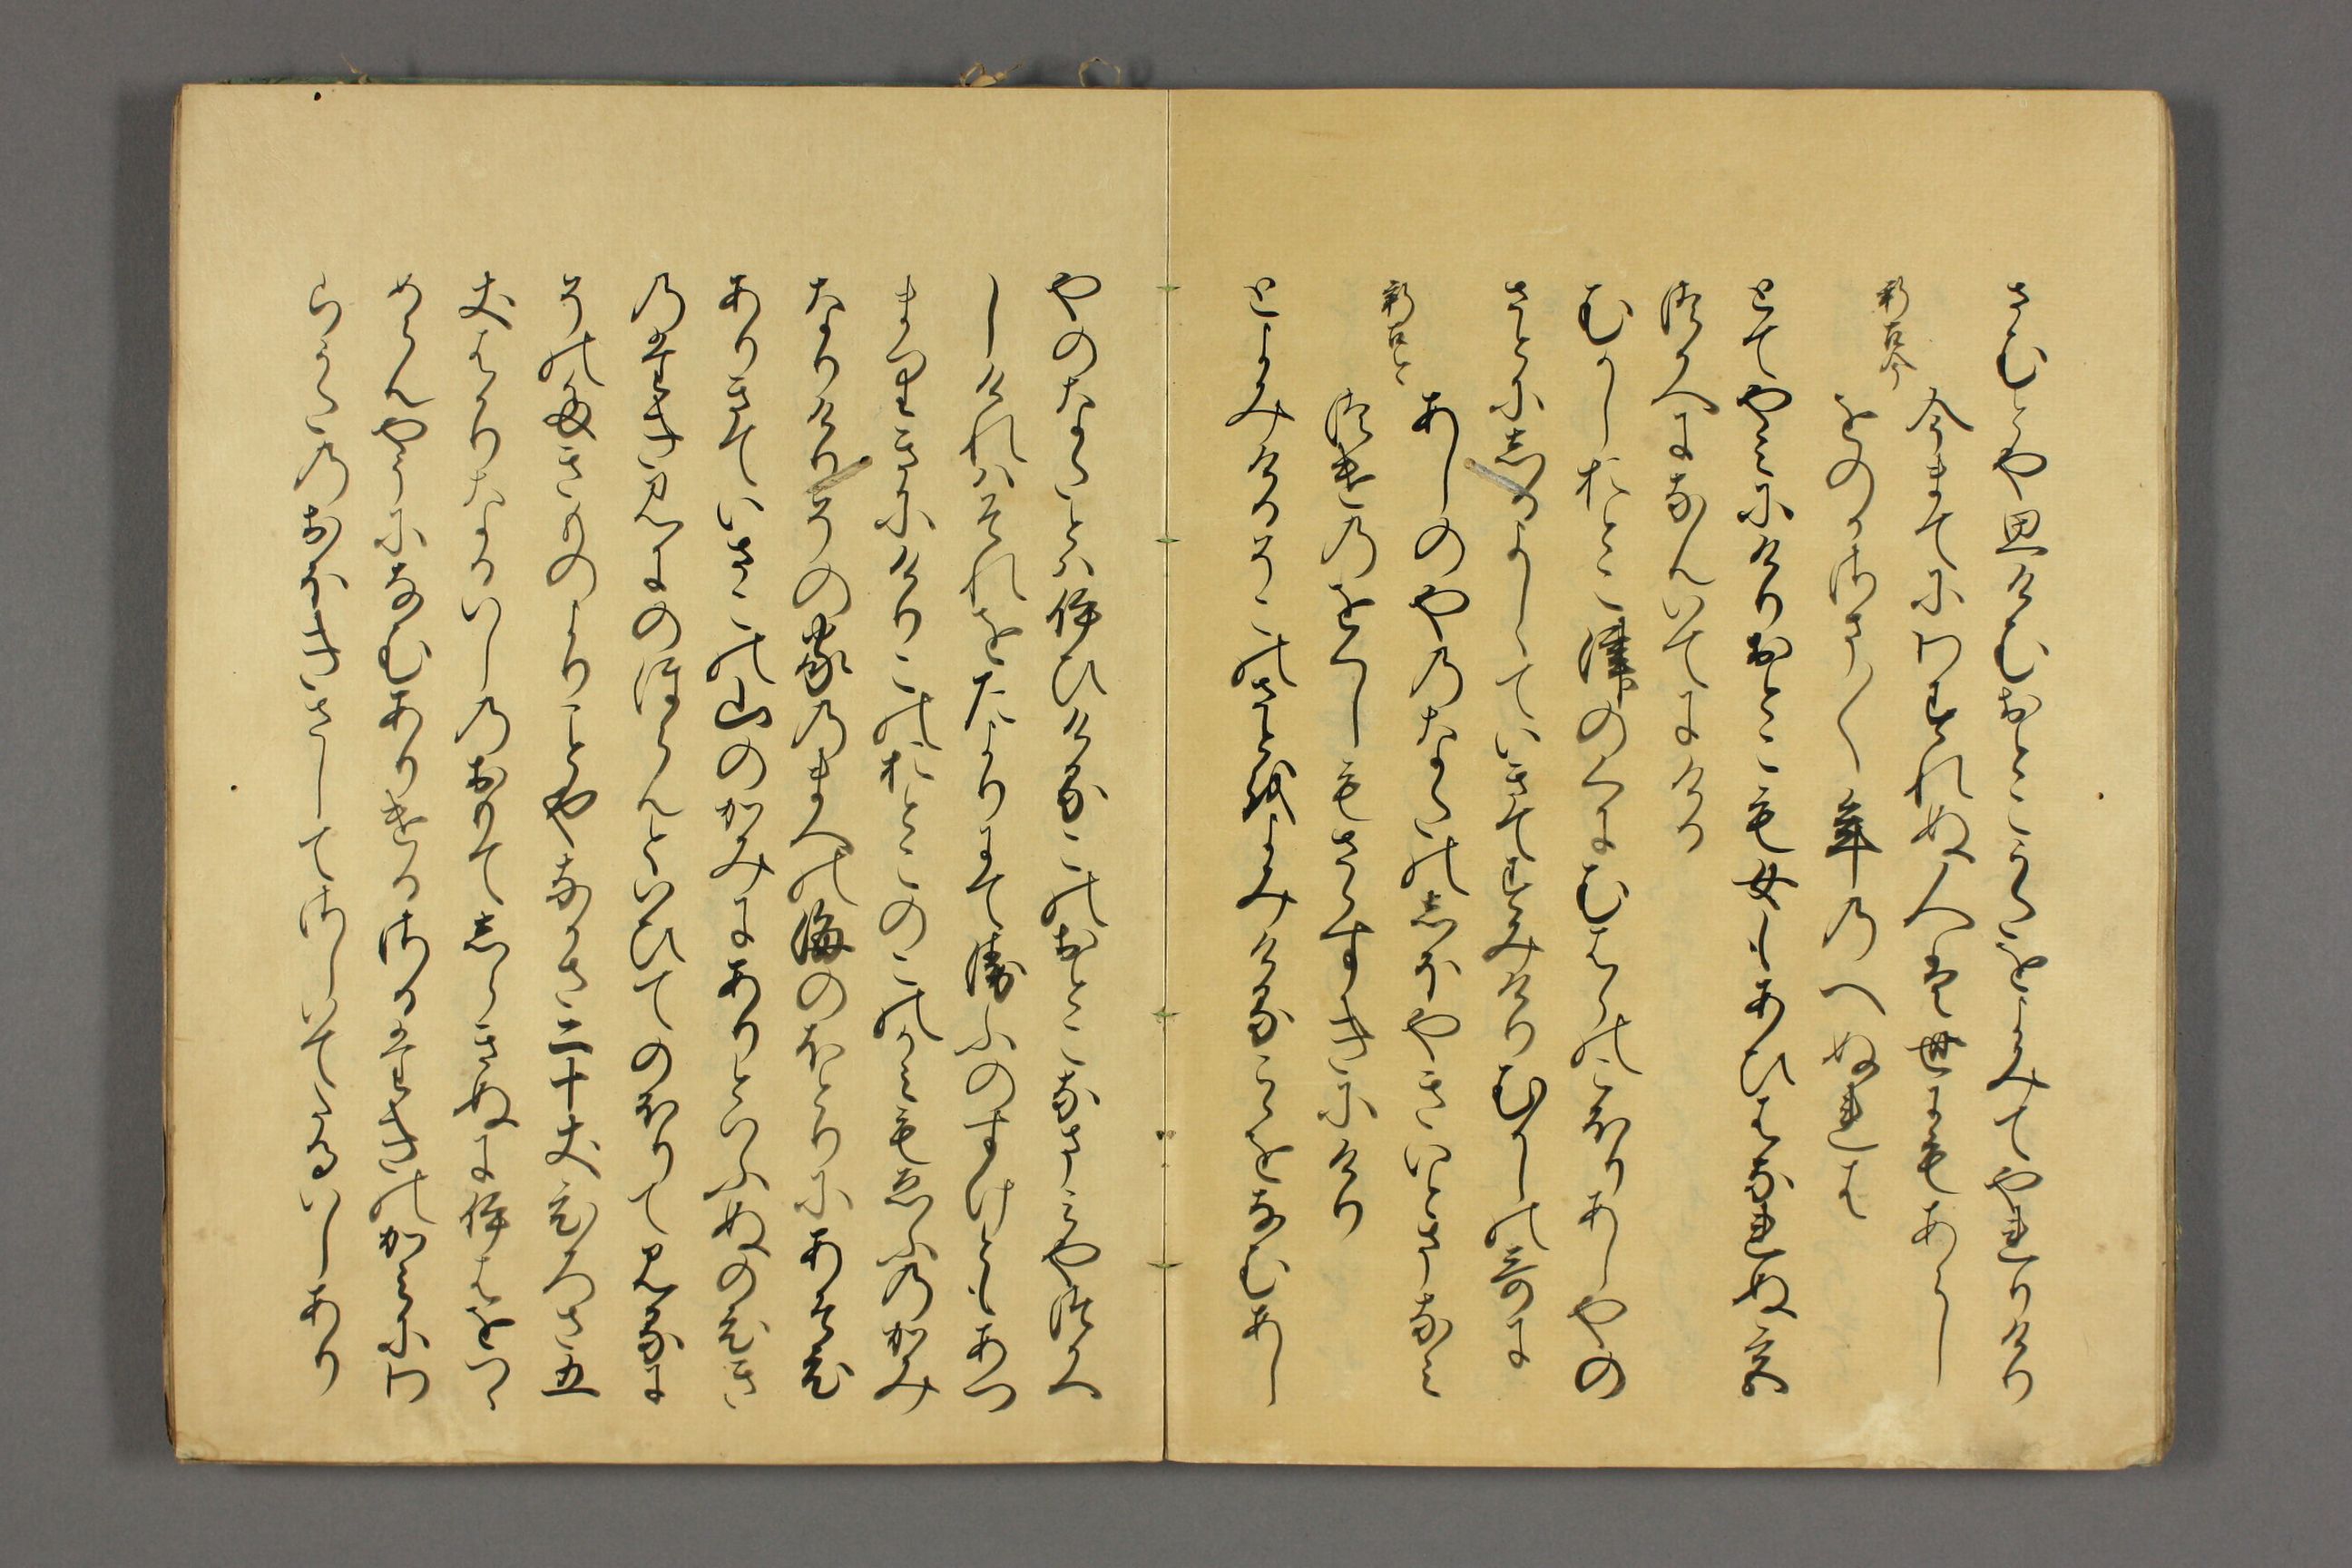 さむとや思けむおとこうたをよみてやれりけり
新古今
今まてにわすれぬ人は世にもあらし
をのかさま〱年のへぬれは
とてやみにけりおとこも女もあひはなれぬ宮
つかへになんいてにける
むかしおとこ津のくにむはらのこほりあしやの
さとにしるよしゝていきてすみけりむかしの哥に
新古今
あしのやのなたのしほやきいとまなみ
つけのをくしもさゝすきにけり
とよみけるそこのさとをよみけるこゝをなむあし
やのなたとは伊ひけるこのおとこなまみやつかへ
しけれはそれをたよりにて衛ふのすけともあつ
まりきにけりこのおとこのこのかみも衛ふのかみ
なりけりその家のまへの海のほとりにあそひ
ありきていさこの山のかみにありといふぬのひき
のたき見にのほらんといひてのほりて見るに
そのたきものよりことやなかさ二十丈ひろさ五
丈はかりなるいしのおもてしらきぬに伊はをつゝ
めらんやうになむありけるさるたきのかみにわ
らうたのおほきさしてさしいてたるいしあり